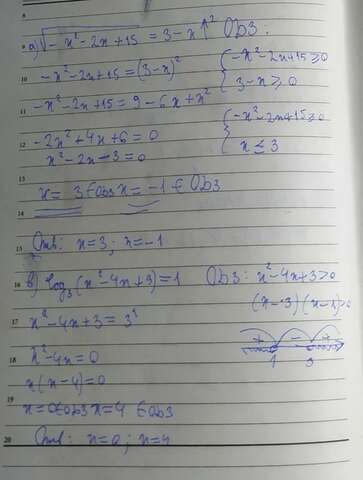 8
9 д) √(-x²-2x+15) = 3-x ↑² Обз:
10 -x²-2x+15=(3-x)² { -x²-2x+15≥0
3-x≥0
11 -x²-2x+15=9-6x+x²
12 -2x²+4x+6=0 { -x²-2x+15≥0
x≤3
x²-2x-3=0
13
x=3 ∈ Обз x=-1 ∈ Обз
14
15 Отв: x=3; x=-1
16 в) log₃(x²-4x+3)=1 Обз: x²-4x+3>0
(x-3)(x-1)>0
17 x²-4x+3=3¹
+ - +
1 3
18 x²-4x=0
x(x-4)=0
19
x=0 ∈ Обз x=4 ∈ Обз
20 Отв: x=0; x=4